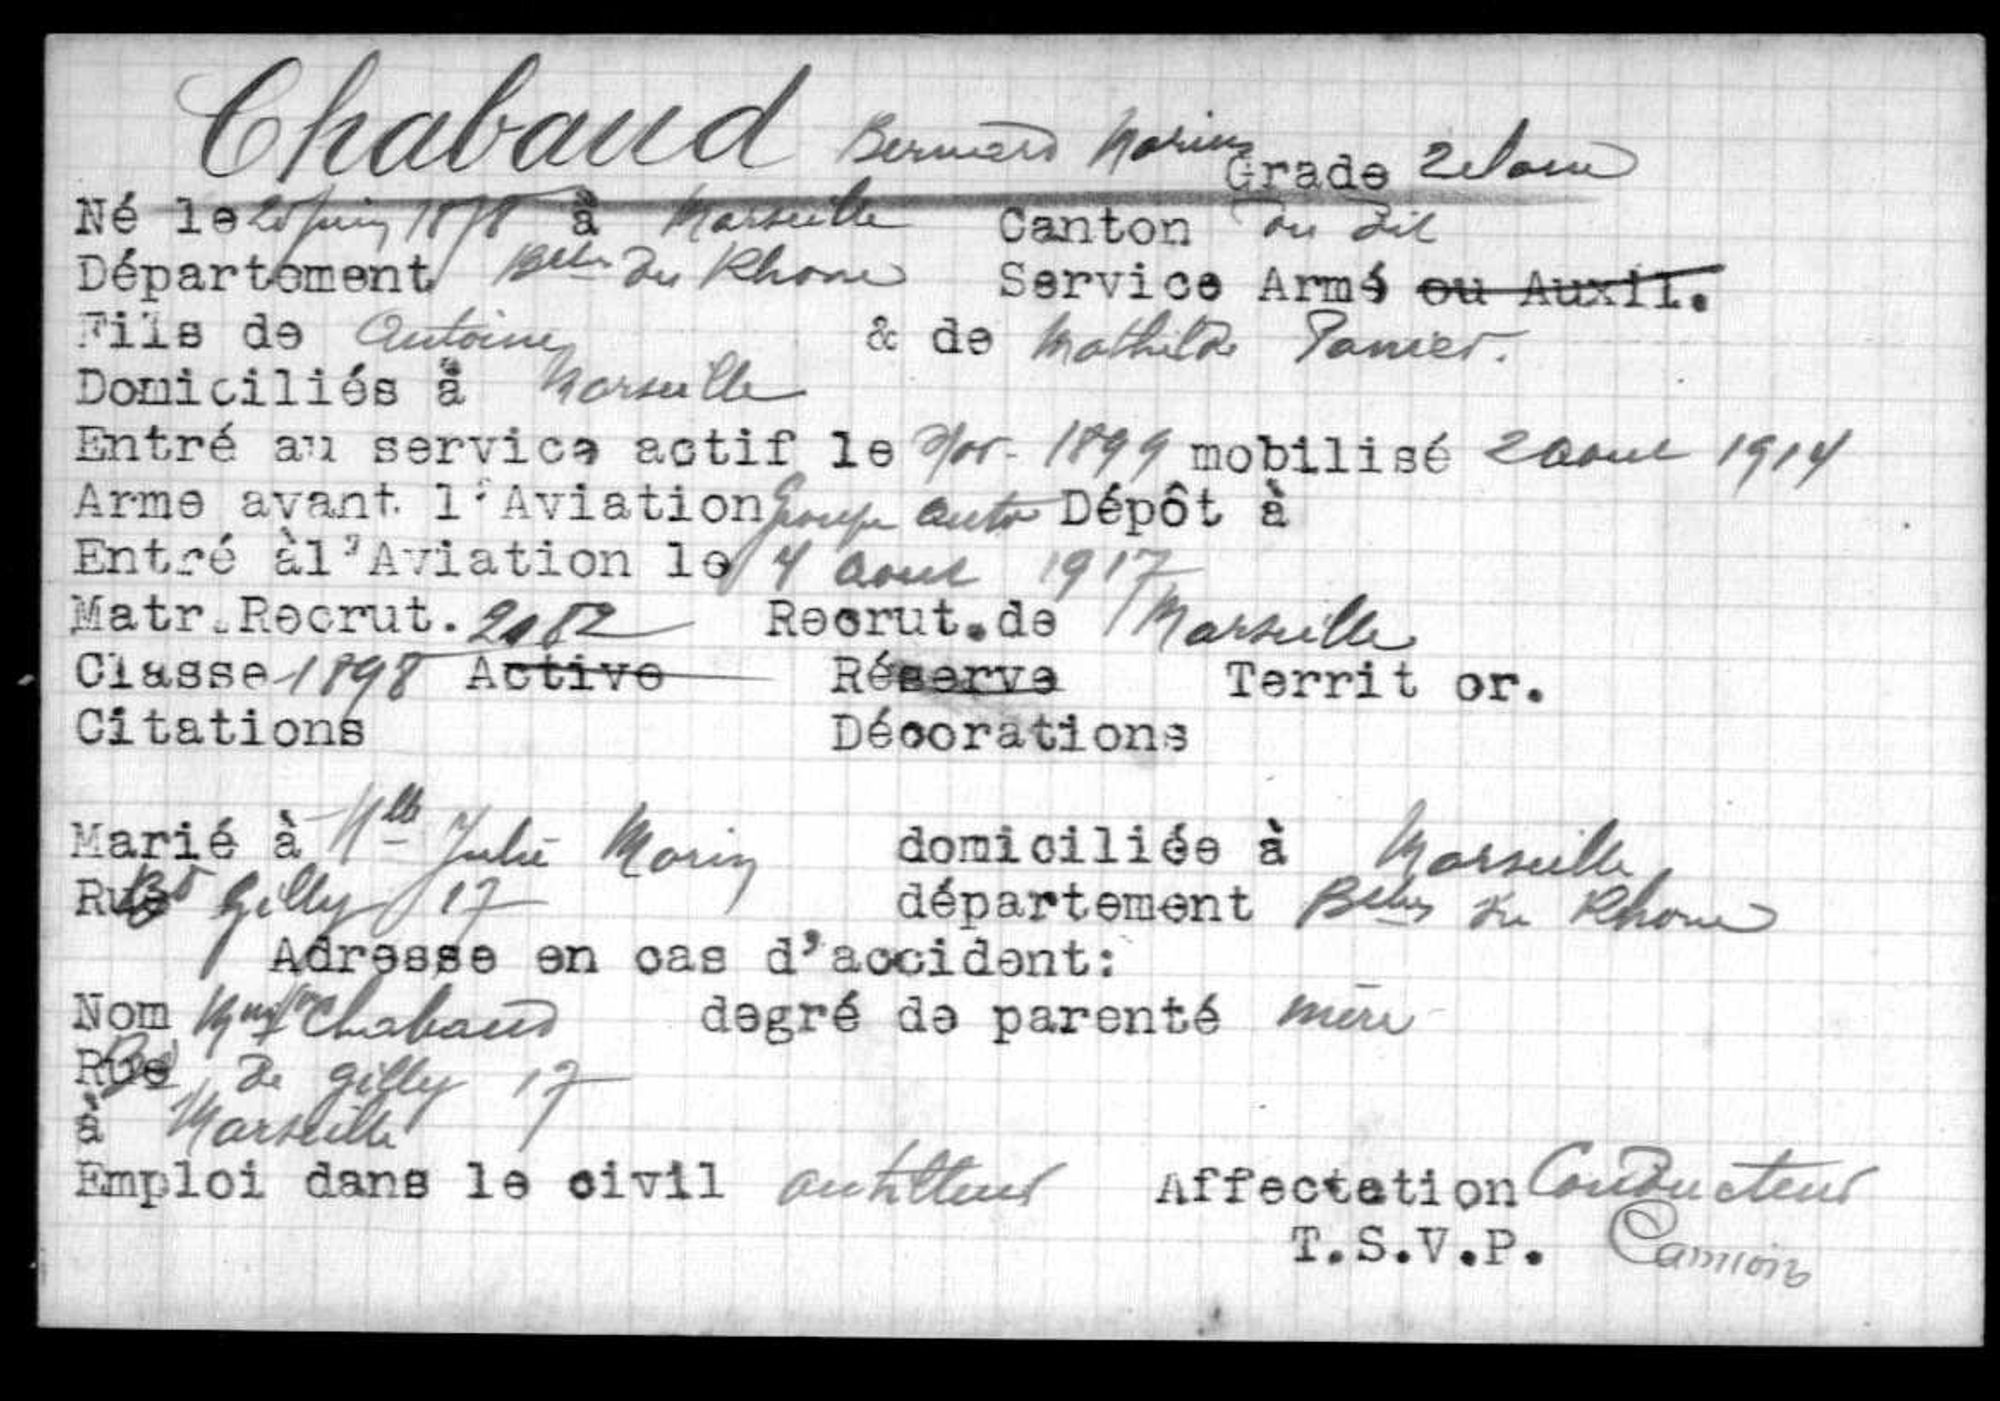 Chabaud Bernard Marius Grade 2e
Né le 20 juin 1878 à Marseille Canton du dit
Département Bches du Rhone Service Armé ou Auxil.
Fils de Antoine & de Mathilde Panier.
Domiciliés à Marseille
Entré au service actif le Nov- 1899 mobilisé 2 aout 1914
Arme avant l'Aviation Groupe auto Dépôt à
Entré àl'Aviation le 4 aout 1917
Matr.Recrut. 2182 Recrut.de Marseille
Classe 1898 Active Réserve Territ or.
Citations Décorations
Marié à Mlle Julie Morin domiciliée à Marseille
Rue Bd Gilly 17 département Bches du Rhone
Adresse en cas d'accident:
Nom Chabaud degré de parenté mère
Rue Bd de gilly 17
à Marseille
Emploi dans le civil Affectation Conducteur
T.S.V.P. Camion